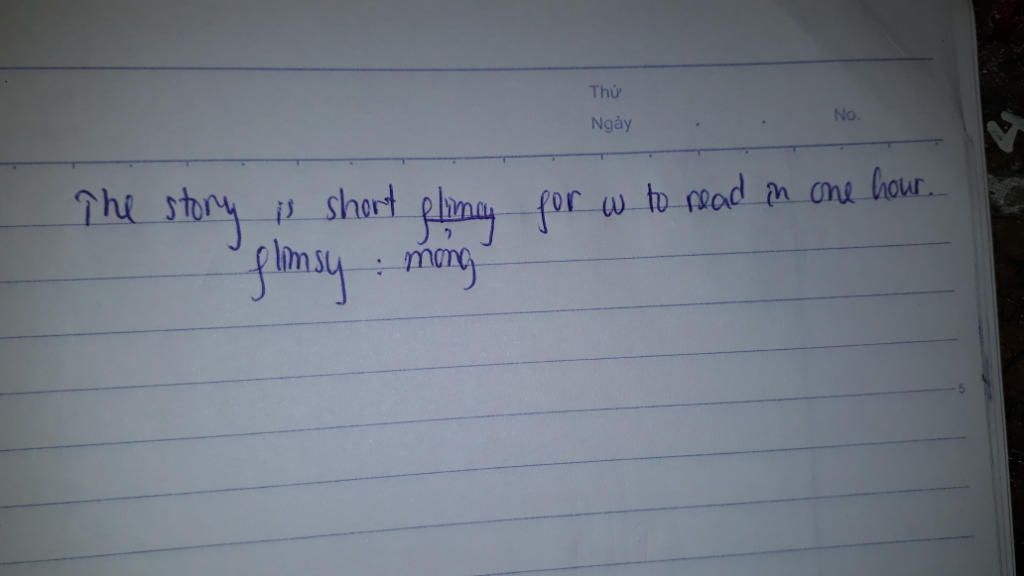 Thứ
Ngày . . No.
The story is short flimsy for us to read in one hour.
flimsy : mỏng
5